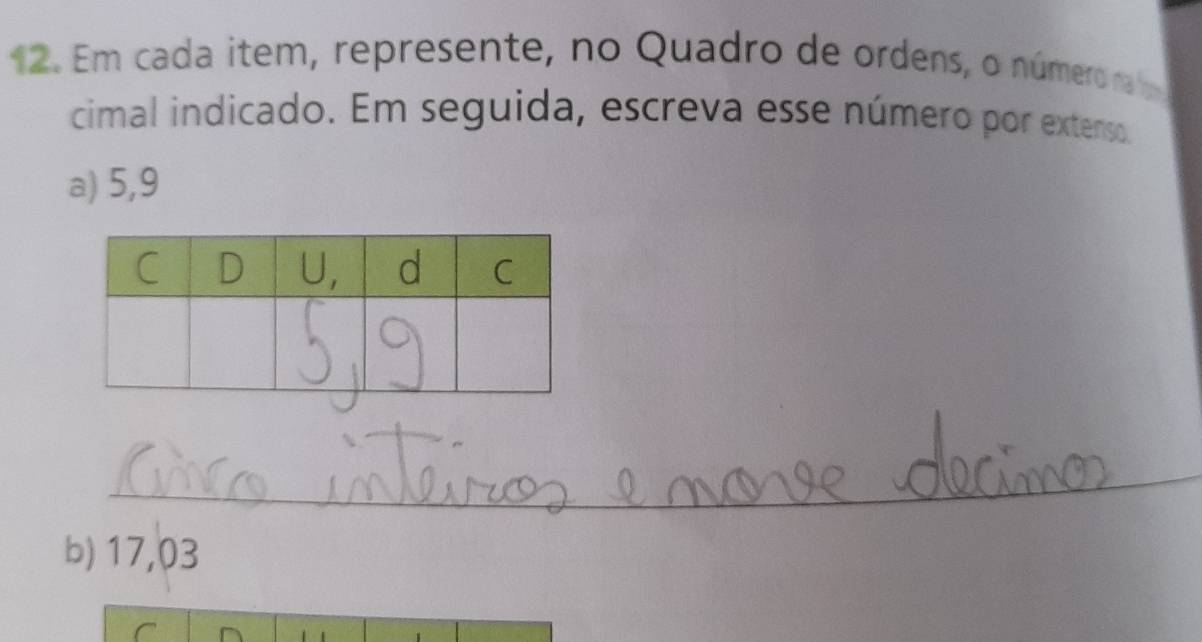 12. Em cada item, represente, no Quadro de ordens, o número na
cimal indicado. Em seguida, escreva esse número por extenso.
a) 5,9
C D U, d c
5,9
Cinco inteiros e nove decimos
b) 17,03
C D U